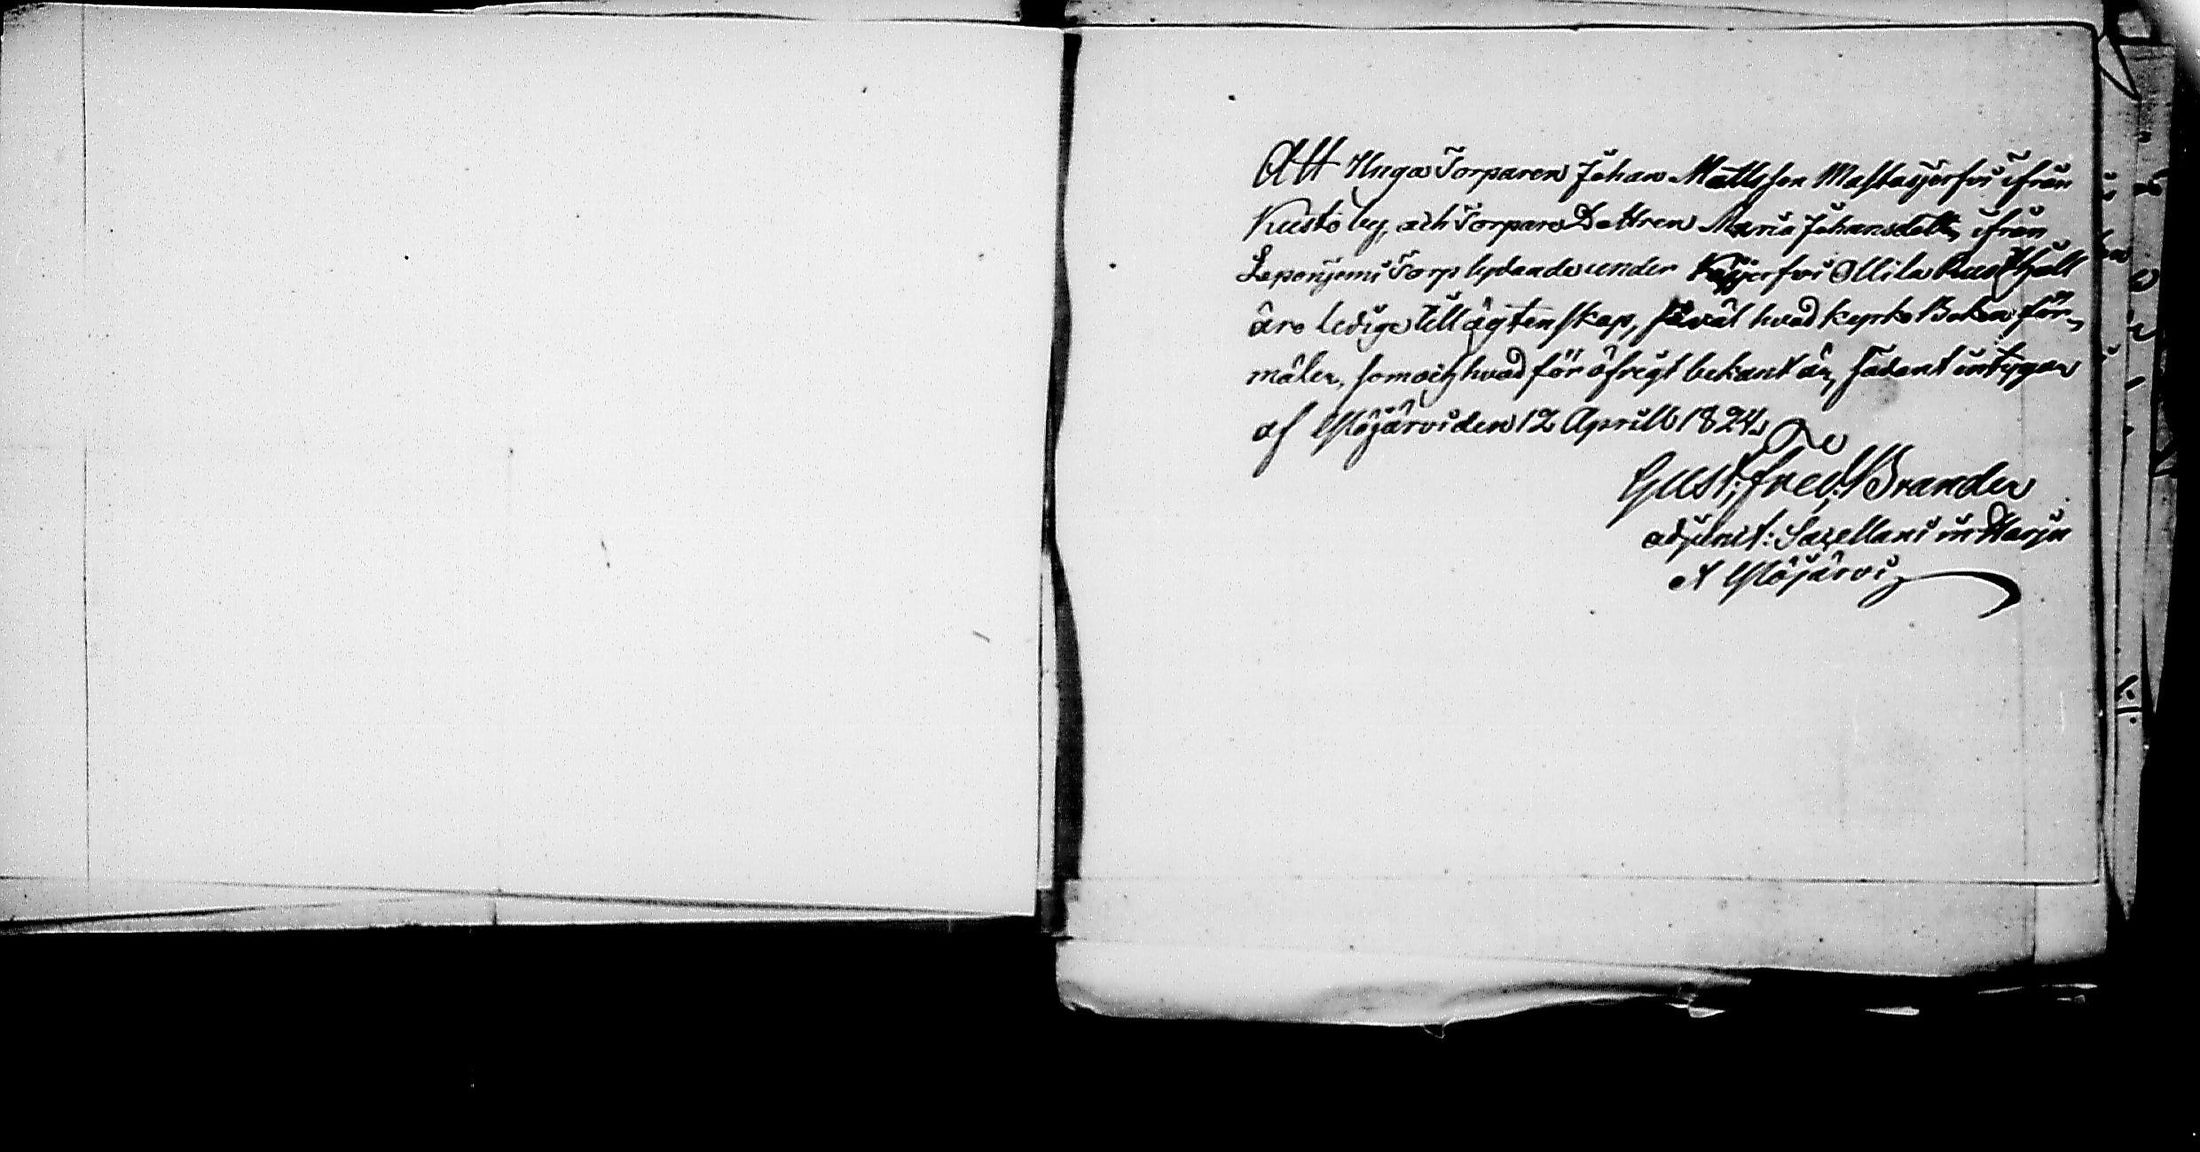 Att Unga Torparen Johan Mattsson Mastasjerfvi ifrån
Kustö by, och Torpare Dottren Maria Johansdotter ifrån
Leponjemi Torp lydande under Ollila Rusthåll
äro ledige till ägtenskap, såväl hvad kyrko Boken för-
mäler, som och hvad för öfrigt bekant är, sådant intygas
af Ylöjärvi den 12 Aprill 1824.
Gust: Fred: Brander
adjunct: Sacellani in Harju
et Ylöjärvi